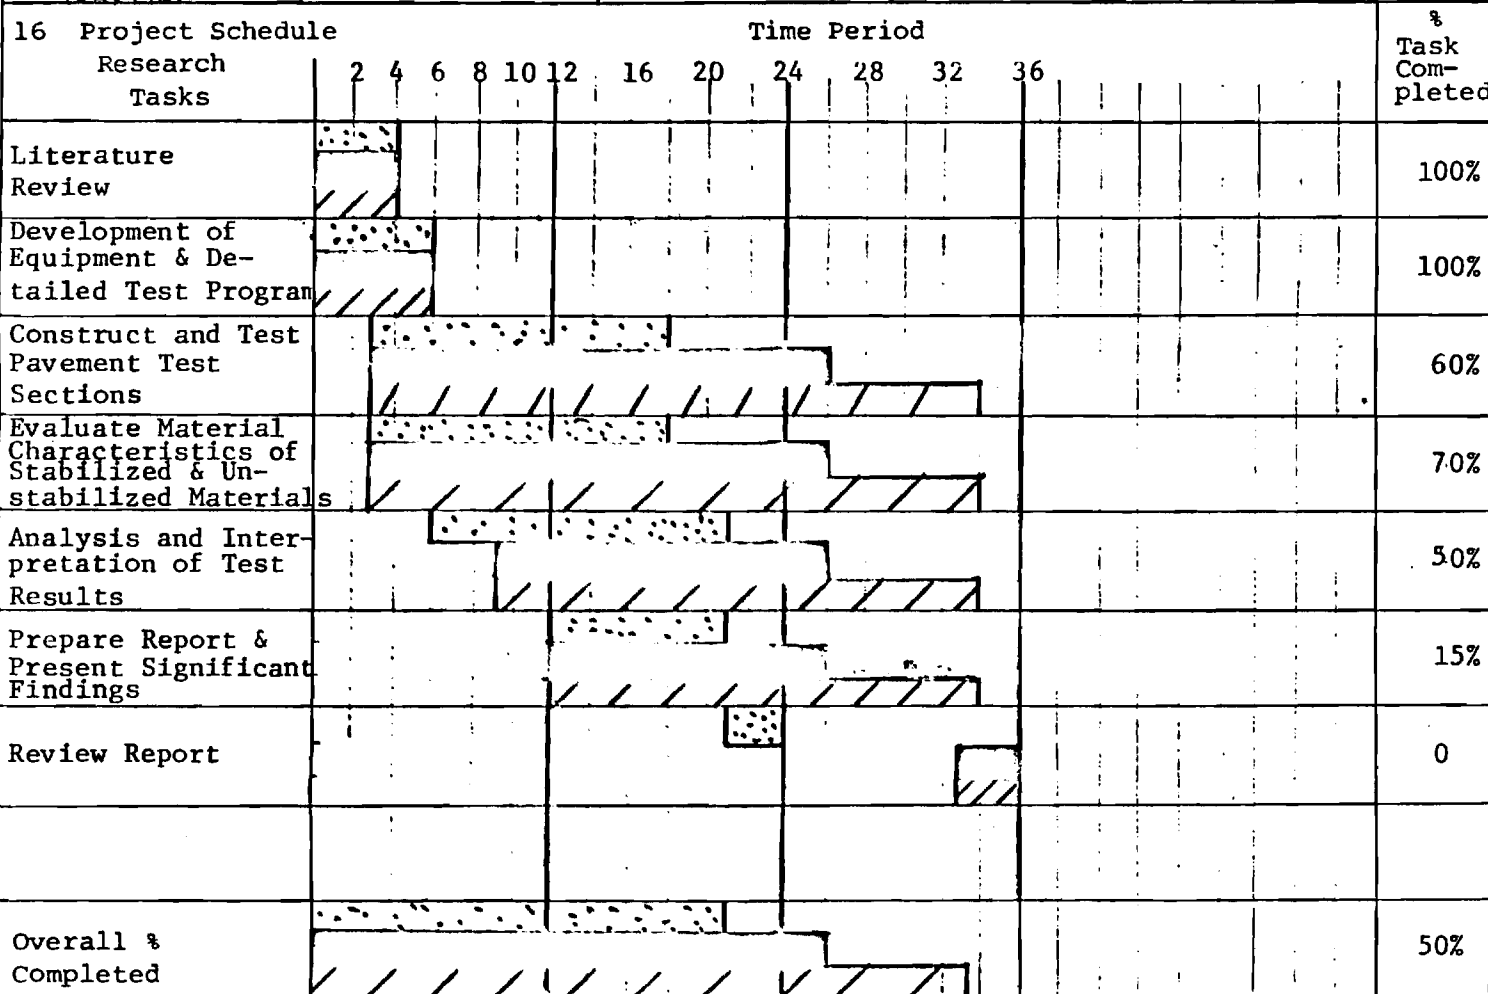 16 Project Schedule
Research
Tasks
Time Period
2 4 6 8 10 12 16 20 24 28 32 36
%
Task
Com-
pleted
Literature
Review
100%
Development of
Equipment & De-
tailed Test Program
100%
Construct and Test
Pavement Test
Sections
60%
Evaluate Material
Characteristics of
Stabilized & Un-
stabilized Materials
70%
Analysis and Inter-
pretation of Test
Results
50%
Prepare Report &
Present Significant
Findings
15%
Review Report
0
Overall %
Completed
50%